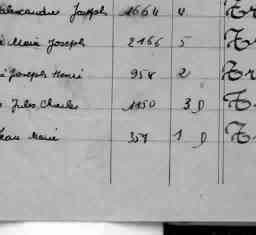 Alexandre Joseph 1664 4 Tr
Marie Joseph 2166 5 Tr
Joseph Henri 954 2 Tr
Jules, Charles 1150 3 D Tr
Jean Marie 357 1 D Tr